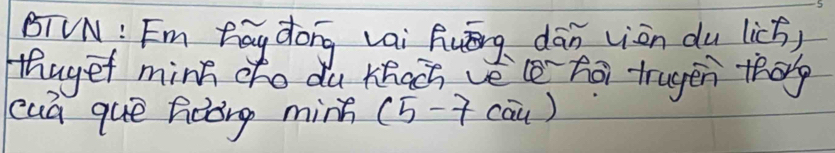 BTVN: Em hãy đóng vai hướng dẫn viên du lịch,
thuyết minh cho du khách về lễ hội truyền thống
của quê hương mình (5-7 câu)